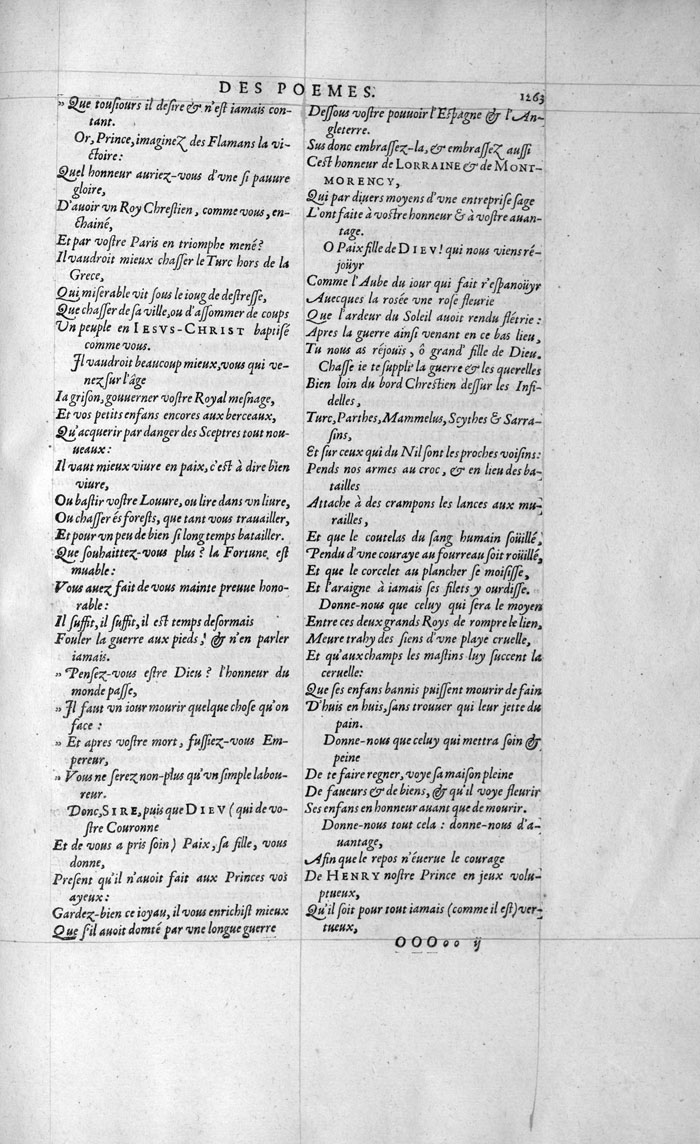 DES POEMES.
1263
» Que tousiours il desire & n'est iamais con-
tant.
Or, Prince, imaginez des Flamans la vi-
ctoire:
Quel honneur auriez-vous d'vne si pauure
gloire,
D'auoir vn Roy Chrestien, comme vous, en-
chainé,
Et par vostre Paris en triomphe mené?
Il vaudroit mieux chasser le Turc hors de la
Grece,
Qui miserable vit sous le ioug de destresse,
Que chasser de sa ville, ou d'assommer de coups
Vn peuple en IESVS-CHRIST baptisé
comme vous.
Il vaudroit beaucoup mieux, vous qui ve-
nez sur l'âge
Ia grison, gouuerner vostre Royal mesnage,
Et vos petits enfans encores aux berceaux,
Qu'acquerir par danger des Sceptres tout nou-
ueaux:
Il vaut mieux viure en paix, c'est à dire bien
viure,
Ou bastir vostre Louure, ou lire dans vn liure,
Ou chasser és forests, que tant vous trauailler,
Et pour vn peu de bien si long temps batailler.
Que souhaittez-vous plus? la Fortune est
muable:
Vous auez fait de vous mainte preuue hono-
rable:
Il suffit, il suffit, il est temps desormais
Fouler la guerre aux pieds, & n'en parler
iamais.
» Pensez-vous estre Dieu? l'honneur du
monde passe,
» Il faut vn iour mourir quelque chose qu'on
face:
» Et apres vostre mort, fussiez-vous Em-
pereur,
» Vous ne serez non-plus qu'vn simple labou-
reur.
Donc, SIRE, puis que DIEV (qui de vo-
stre Couronne
Et de vous a pris soin) Paix, sa fille, vous
donne,
Present qu'il n'auoit fait aux Princes vos
ayeux:
Gardez-bien ce ioyau, il vous enrichist mieux
Que s'il auoit domté par vne longue guerre
Dessous vostre pouuoir l'Espagne & l'An-
gleterre.
Sus donc embrassez-la, & embrassez aussi
Cest honneur de LORRAINE & de MONT-
MORENCY,
Qui par diuers moyens d'vne entreprise sage
L'ont faite à vostre honneur & à vostre auan-
tage.
O Paix fille de DIEV! qui nous viens ré-
joüyr
Comme l'Aube du iour qui fait r'espanoüyr
Auecques la rosée vne rose fleurie
Que l'ardeur du Soleil auoit rendu flétrie:
Apres la guerre ainsi venant en ce bas lieu,
Tu nous as réjouis, ô grand' fille de Dieu.
Chasse ie te suppli' la guerre & les querelles
Bien loin du bord Chrestien dessur les Infi-
delles,
Turc, Parthes, Mammelus, Scythes & Sarra-
sins,
Et sur ceux qui du Nil sont les proches voisins:
Pends nos armes au croc, & en lieu des ba-
tailles
Attache à des crampons les lances aux mu-
railles,
Et que le coutelas du sang humain soüillé,
Pendu d'vne couraye au fourreau soit roüillé,
Et que le corcelet au plancher se moisisse,
Et l'araigne à iamais ses filets y ourdisse.
Donne-nous que celuy qui sera le moyen
Entre ces deux grands Roys de rompre le lien,
Meure trahy des siens d'vne playe cruelle,
Et qu'aux champs les mastins luy succent la
ceruelle:
Que ses enfans bannis puissent mourir de fain
D'huis en huis, sans trouuer qui leur jette du
pain.
Donne-nous que celuy qui mettra soin &
peine
De te faire regner, voye sa maison pleine
De faueurs & de biens, & qu'il voye fleurir
Ses enfans en honneur auant que de mourir.
Donne-nous tout cela: donne-nous d'a-
uantage,
Afin que le repos n'éuerue le courage
De HENRY nostre Prince en jeux volu-
ptueux,
Qu'il soit pour tout iamais (comme il est) ver-
tueux,
OOOoo ij